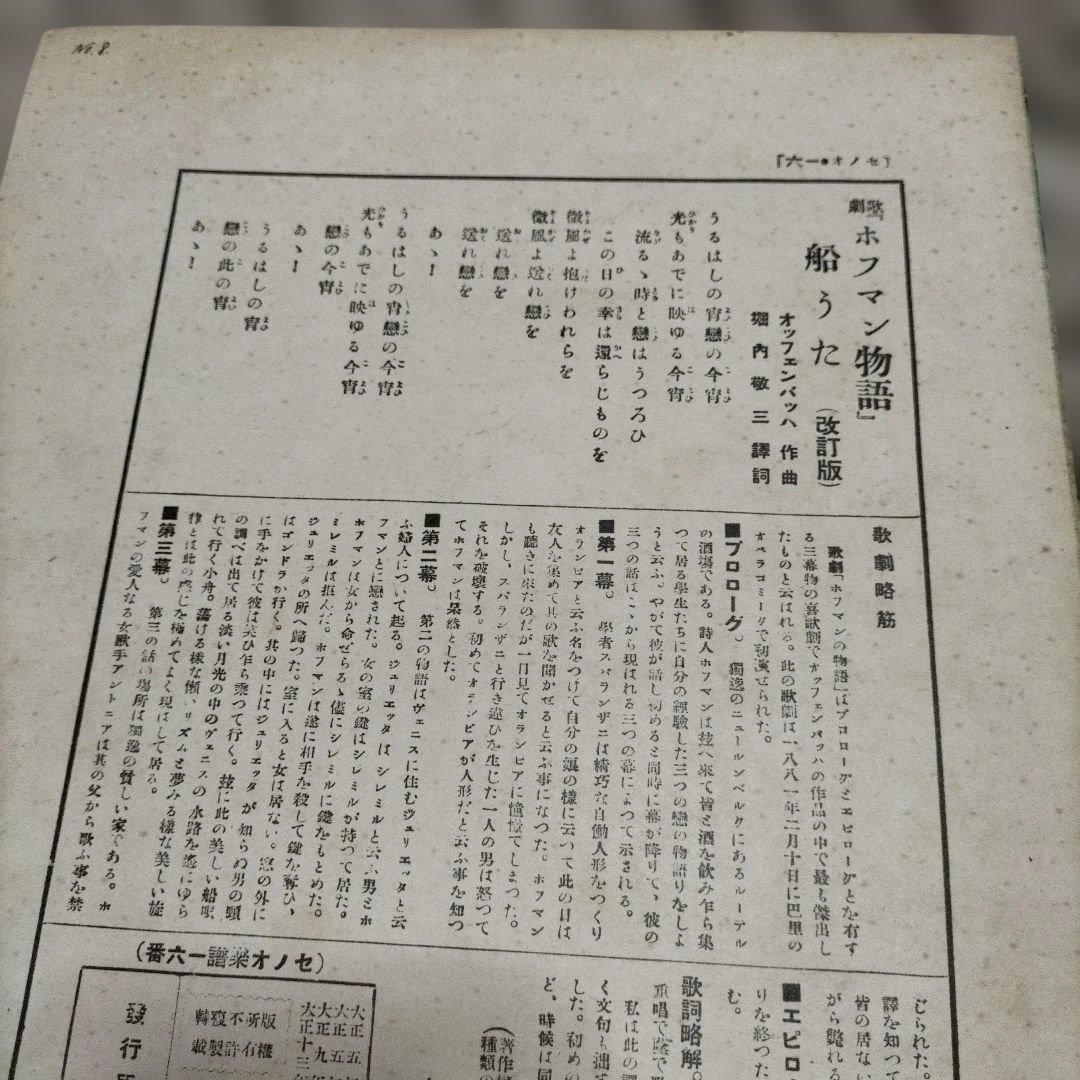 No. 8.
「セノオ・一六」
歌劇「ホフマン物語」
船うた (改訂版)
オッフェンバッハ 作曲
堀内敬三 譯詞
うるはしの宵戀の今宵
光もあでに映ゆる今宵
流るゝ時と戀はうつろひ
この日の幸は還らじものを
微風よ抱けわれらを
微風よ送れ戀を
送れ戀を
送れ戀を
あゝ!
うるはしの宵戀の今宵
光もあでに映ゆる今宵
戀の今宵
あゝ!
うるはしの宵
戀の此の宵
あゝ!
歌劇略筋
歌劇「ホフマンの物語」はプロローグとエピローグとを有す
る三幕物の喜歌劇でオッフェンバッハの作品の中で最も傑出し
たものと云はれる。此の歌劇は一八八一年二月十日に巴里の
オペラコミークで初演せられた。
■プロローグ。 獨逸のニュールンベルクにあるルーテル
の酒場である。詩人ホフマンは玆へ來て皆と酒を飮み乍ら集
つて居る學生たちに自分の經驗した三つの戀の物語りをしよ
うと云ふ。やがて彼が話し初めると同時に幕が降りて、彼の
三つの話はこゝから現はれる三つの幕によつて示される。
■第一幕。 學者スパランザニは精巧な自働人形をつくり
オランピアと云ふ名をつけて自分の娘の樣に云つて此の日は
友人を集めて其の歌を聞かせると云ふ事になつた。ホフマン
も聽きに來たのだが一目見てオランピアに憧憬てしまつた。
しかし、スパランザニと行き違ひを生じた一人の男は怒つて
それを破壞する。初めてオランピアが人形だと云ふ事を知つ
てホフマンは呆然とした。
■第二幕。 第二の物語はヴェニスに住むジュリエッタと云
ふ婦人について起る。ジュリエッタは シレミルと云ふ男とホ
フマンとに戀された。女の室の鍵はシレミルが持つて居た。
ホフマンは女から命ぜらるゝ儘にシレミルに鍵をもとめた。
シレミルは拒んだ。ホフマンは遂に相手を殺して鍵を奪ひ、
ジュリエッタの所へ歸つた。室に入ると女は居ない。窓の外に
はゴンドラが行く。其の中にはジュリエッタ が 知らぬ男の頸
に手をかけて彼は笑ひ乍ら乘つて行く。玆に此の美しい船唄
の調べは出て居る淡い月光の中のヴェニスの 水路を遙にゆら
れて行く小舟。蕩ける樣な懶いリズムと夢みる樣な美しい旋
律とは此の感じを極めてよく現はして居る。
■第三幕。 第三の話の場所は獨逸の貧しい家である。ホ
フマンの愛人なる女歌手アントニアは其の父から歌ふ事を禁
じられた。
譯を知つて
皆の居ない
がら斃れる
■エピロ
りを終つた
む。
歌詞略解。
重唱で
私は此の譯
く文句も拙
した。初めの
ど、時候は同
(著作權
種類の
(セノオ樂譜一六番)
大正五
大正五
大正九年
大正十三年
版權所有
不許複製
轉載
發行